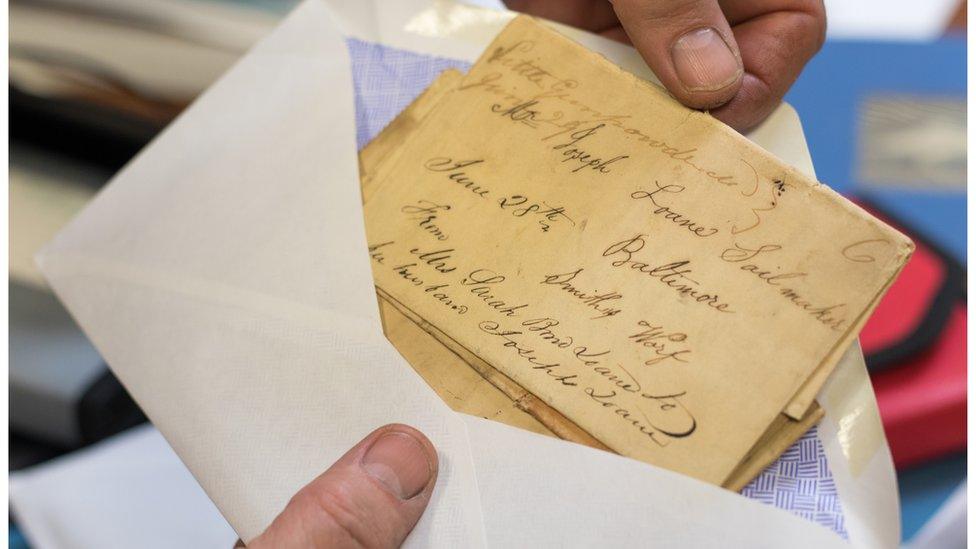 Mr. Joseph Loane Sailmaker
Baltimore
June 28th
Smiths Worf
From
Mrs Sarah Bond Loane to
her husband
Joseph Loane
6